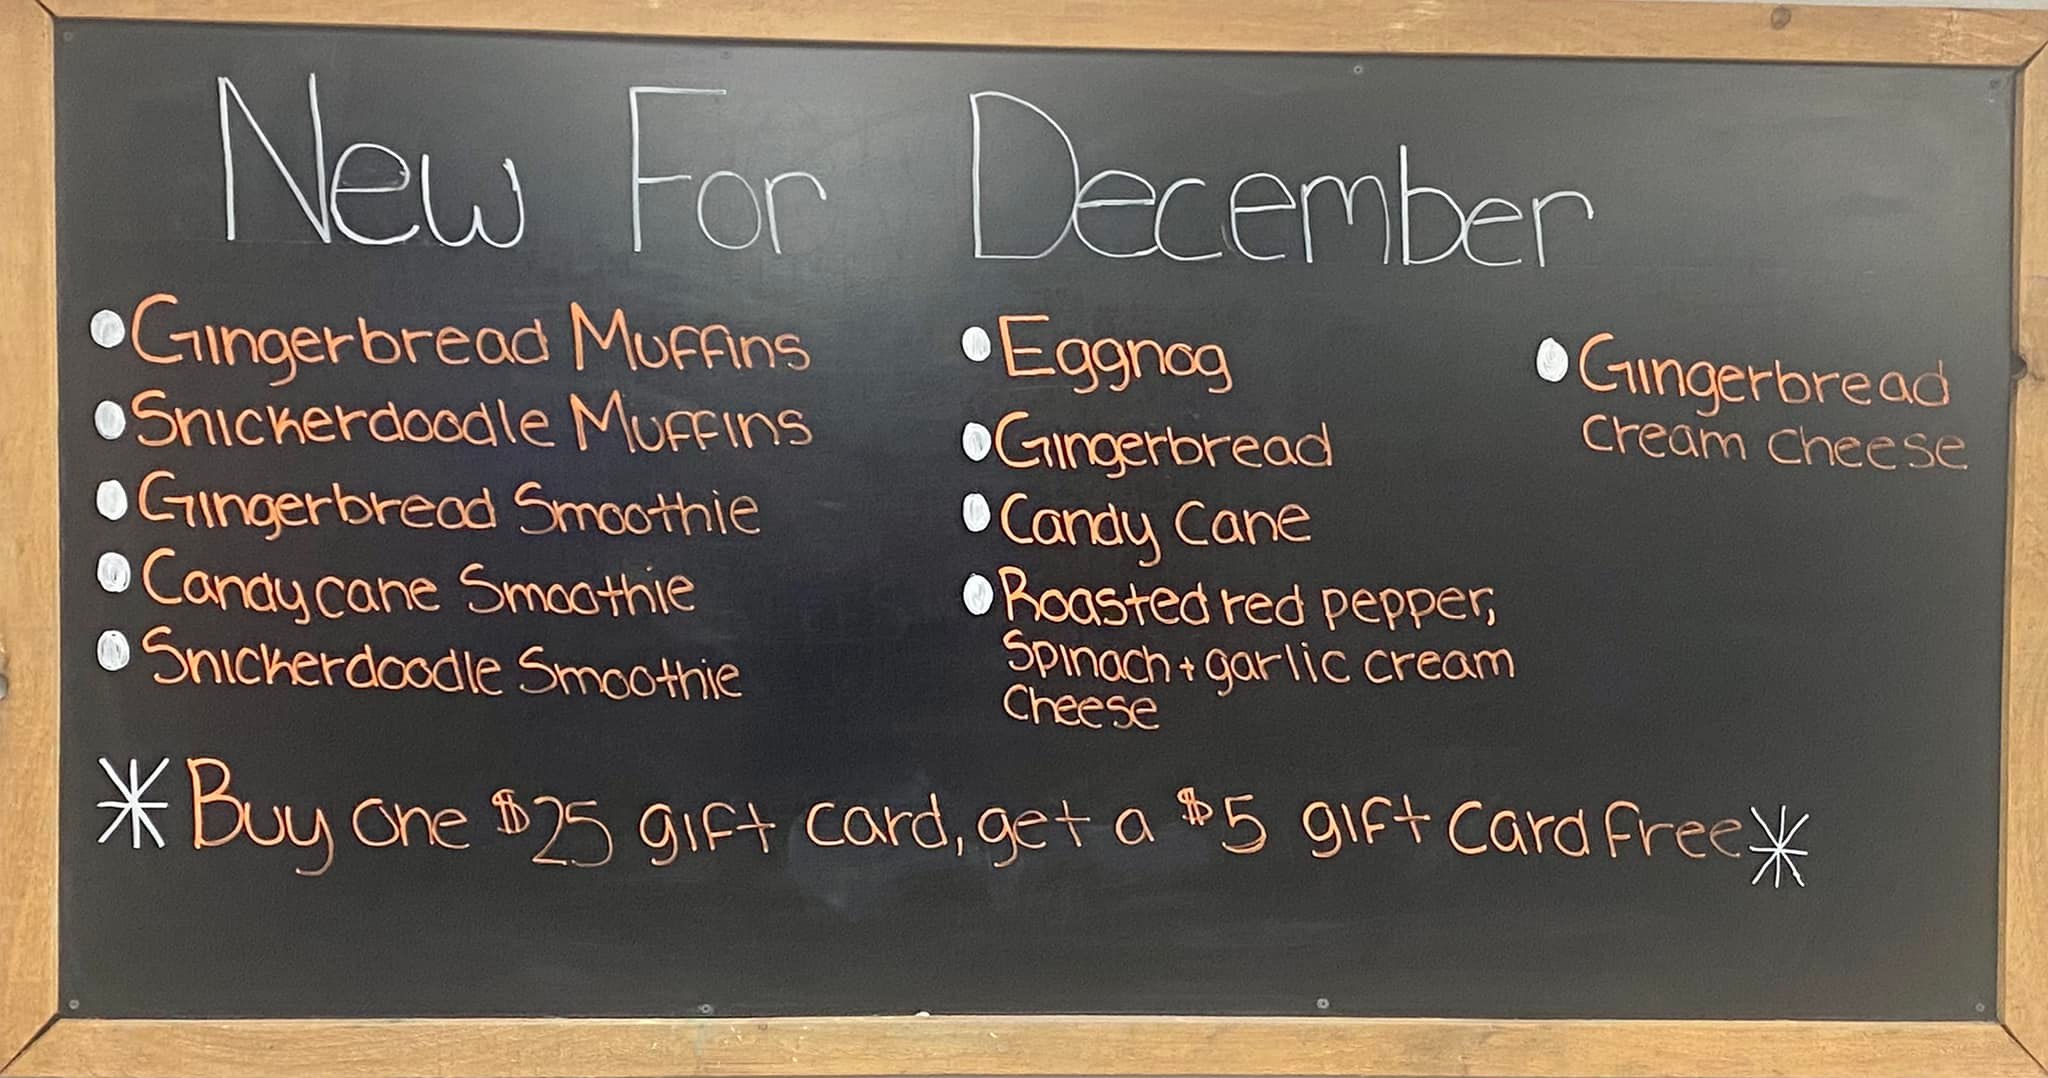 New For December
Gingerbread Muffins
Snickerdoodle Muffins
Gingerbread Smoothie
Candy cane Smoothie
Snickerdoodle Smoothie
Eggnog
Gingerbread
Candy Cane
Roasted red pepper,
Spinach + garlic cream
Cheese
Gingerbread
cream cheese
*Buy one $25 gift card, get a $5 gift card free*